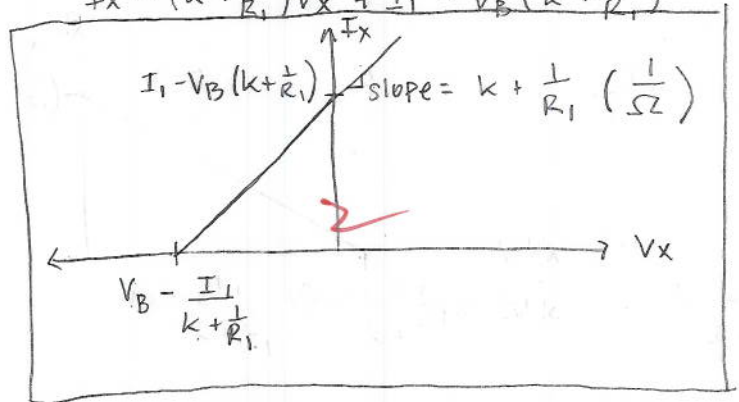 Ix
I₁-VB(k+1/R₁) slope = k + 1/R₁ (1/Ω)
2
Vx
VB - I₁/(k+1/R₁)